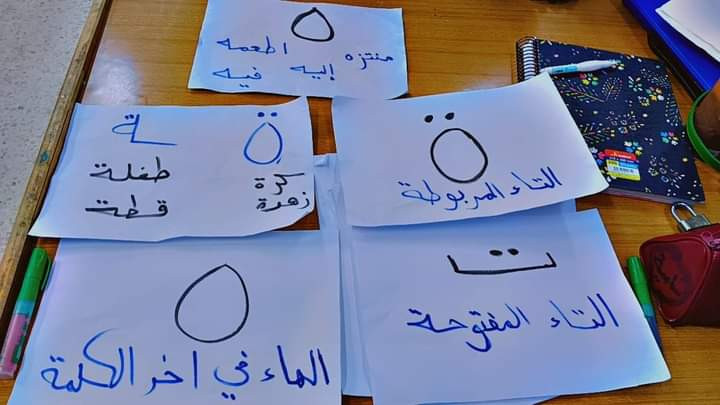 ه
منتزه اطعمه
إليه فيه
ة
التاء المربوطة
ة ـة
كرة طفلة
زهرة قطة
ت
التاء المفتوحة
ه
الهاء في اخر الكلمة